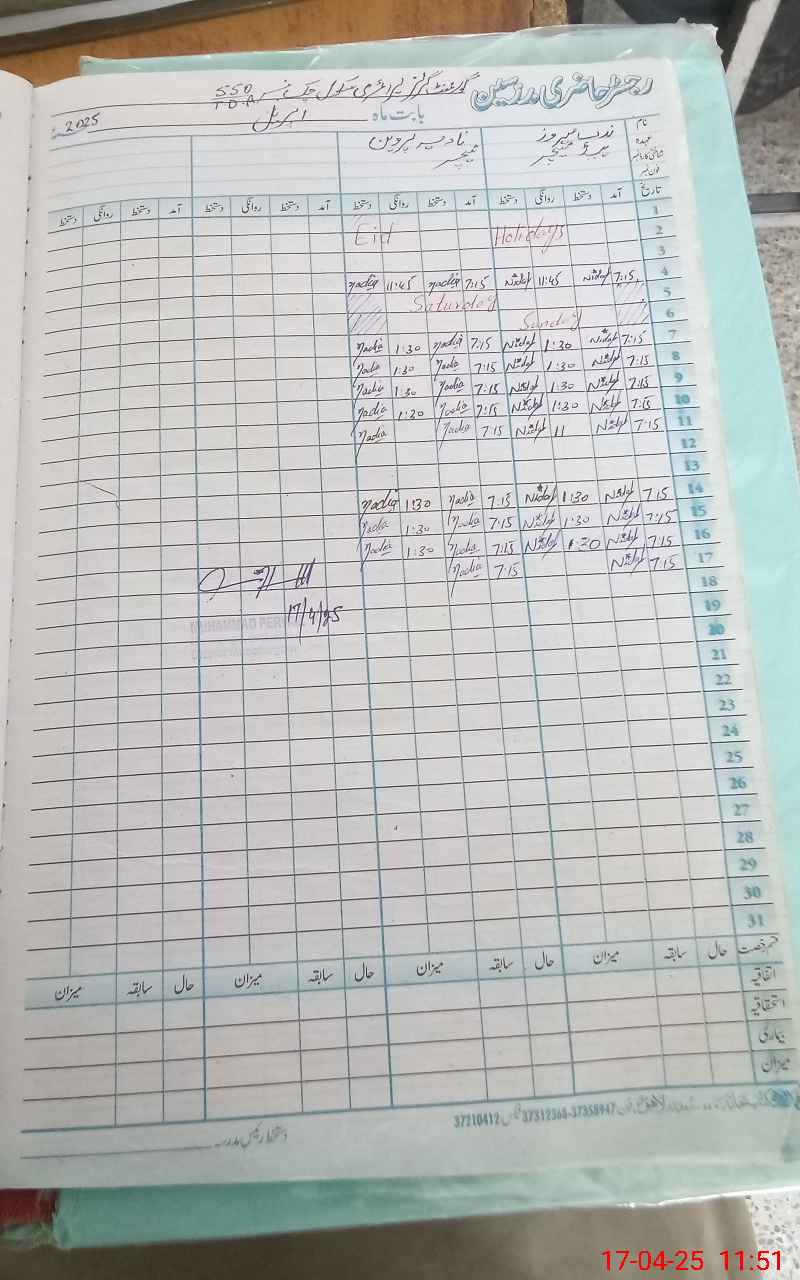 رجسٹر حاضری مدرسین گورنمنٹ گرلز پرائمری سکول چک نمبر 550 TDA
بابت ماہ اپریل 2025ء
نام
عہدہ
شناختی کارڈ نمبر
فون نمبر
ہیڈ ٹیچر
نادیہ پروین
ٹیچر
تاریخ آمد دستخط روانگی دستخط آمد دستخط روانگی دستخط آمد دستخط روانگی دستخط آمد دستخط روانگی دستخط
1
2 Holidays Eid
3
4 7:15 Nidaf 11:45 Nidaf 7:15 Nadia 11:45 Nadia
5 Saturday
6 Sunday
7 7:15 Nidaf 1:30 Nidaf 7:15 Nadia 1:30 Nadia
8 7:15 Nidaf 1:30 Nidaf 7:15 Nadia 1:30 Nadia
9 7:15 Nidaf 1:30 Nidaf 7:15 Nadia 1:30 Nadia
10 7:15 Nidaf 1:30 Nidaf 7:15 Nadia 1:30 Nadia
11 7:15 Nidaf 11 Nidaf 7:15 Nadia Nadia
12
13
14 7:15 Nidaf 1:30 Nidaf 7:15 Nadia 1:30 Nadia
15 7:15 Nidaf 1:30 Nidaf 7:15 Nadia 1:30 Nadia
16 7:15 Nidaf 1:30 Nidaf 7:15 Nadia 1:30 Nadia
17 7:15 Nidaf 7:15 Nadia
18
17/4/25
19
MUHAMMAD
20
21
22
23
24
25
26
27
28
29
30
31
قسم رخصت حال سابقہ میزان حال سابقہ میزان حال سابقہ میزان
اتفاقیہ
استحقاقیہ
بیماری
میزان
لاہور فون 37358947-37312368 فیکس 37210412
دستخط رئیس مدرسہ
17-04-25 11:51